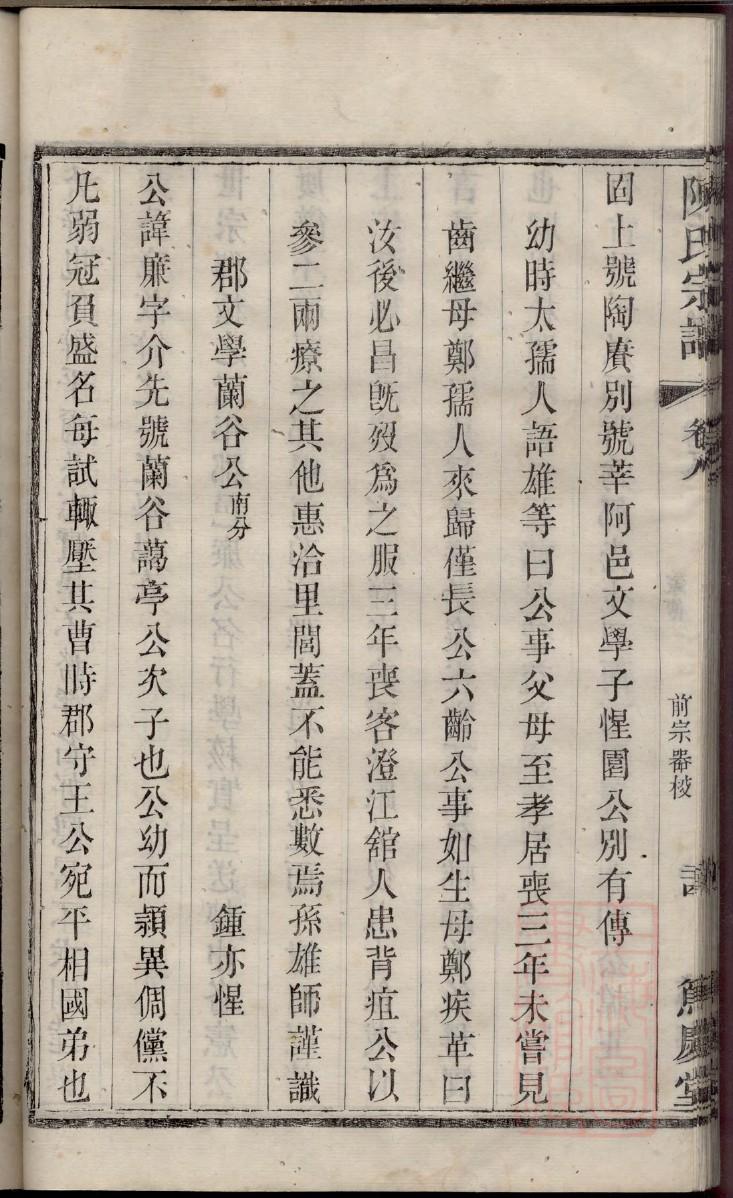 陳氏宗譜
卷八
前宗器棱
譜
篤慶堂
固上號陶賡別號莘阿邑文學子惺園公別有傳
幼時太孺人語雄等曰公事父母至孝居喪三年未嘗見
齒繼母鄭孺人來歸僅長公六齡公事如生母鄭疾革曰
汝後必昌旣歿爲之服三年喪客澄江舘人患背疽公以
參二兩療之其他惠洽里閭蓋不能悉數焉孫雄師謹識
郡文學蘭谷公南分 鍾亦惺
公諱廉字介先號蘭谷藹亭公次子也公幼而穎異倜儻不
凡弱冠負盛名每試輒壓其曹時郡守王公宛平相國弟也